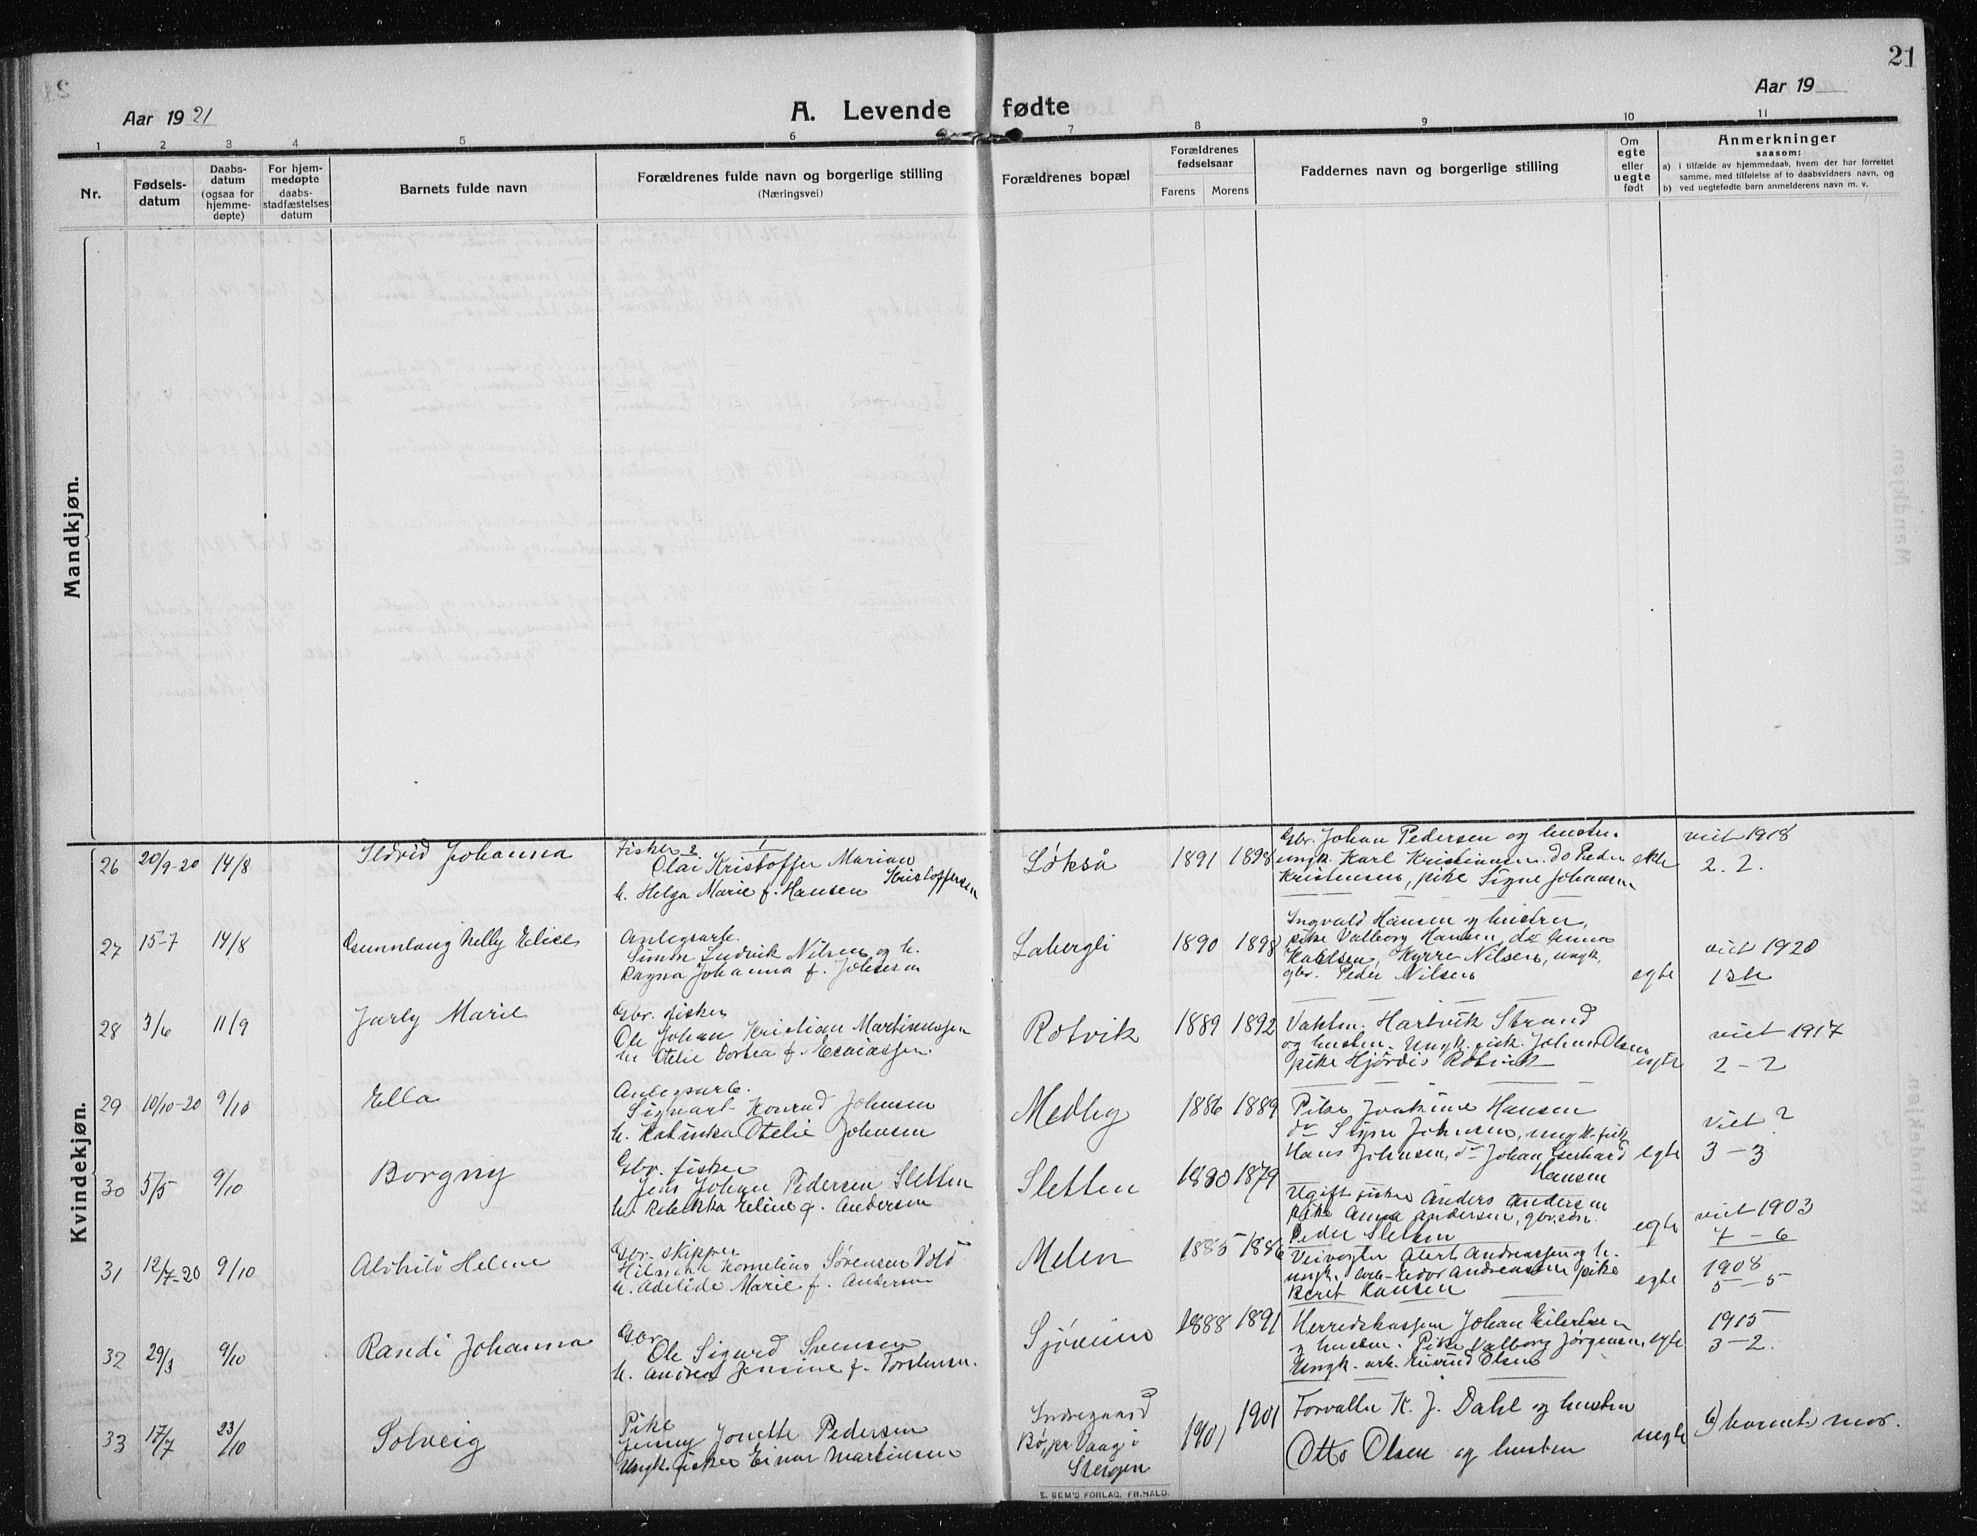 21
Aar 1921
A. Levende fødte
Aar 19
1 2 3 4 5 6 7 8 9 10 11
Nr.
Fødsels-
datum
Daabs-
datum
(ogsaa for
hjemme-
døpte)
For hjem-
medøpte
daabs-
stadfæstelses
datum
Barnets fulde navn
Forældrenes fulde navn og borgerlige stilling
(Næringsvei)
Forældrenes bopæl
Forældrenes
fødselsaar
Farens Morens
Faddernes navn og borgerlige stilling
Om
egte
eller
uegte
født
Anmerkninger
saasom:
a) i tilfælde av hjemmedaab, hvem der har forrettet
samme, med tilføielse af to daabsvidners navn, og
b) ved uegtefødte barn anmelderens navn m. v.
Mandkjøn.
Kvindekjøn.
26 20/9-20 14/8 Sldrid Johanna
Fisker 2 1
Olai Kristoffer Marian
Kristoffersen
h. Helga Marie f. Hansen
Løkså 1891 1898
Gbr. Johan Pedersen og hustru.
ungk. Karl Kristiansen. do Peder
Kristensen, pike Signe Johansen
ekte
viet 1918
2. 2.
27 15-7 14/8 Gunnlaug Nelly Elise
Anlegsarb.
Simon Ludvik Nilsen og h.
Ragna Johanna f. Johnsen
Labergli 1890 1898
Ingvald Hansen og hustru,
pike Valborg Hansen, do Anna
Karlsen, Kyrre Nilsen, ungk.
gbr. Peder Nilsen
egte
viet 1920
1ste
28 3/6 11/9 Jarly Marie
Gbr. fisker
Ole Johan Kristian Martinussen
h. Otelie Dortea f. Eniassen.
Rotvik 1889 1892
Vakten. Hartvik Strand
og hustru. Ungk. fisk. Johan Olsen
pike Hjørdis Rotvik
egte
viet 1917
2 - 2
29 10/10-20 9/10 Ella
Anlegsarb.
Sigvart Konrad Johnsen
h. Katinka Otelie Johnsen
Medby 1886 1889
Pike Joakime Hansen
do Signe Johnsen, ungk. fisk.
Hans Johnsen, do Johan Gerhard
Hansen
egte
Viet ?
3 - 3
30 5/5 9/10 Borgny
Gbr. fisker
Jens Johan Pedersen Sletten
h. Rebekka Eline f. Andersen
Sletten 1880 1879
Ugift fisker Anders Andersen
Pike Anna Andersen, gbr.søn.
Peder Sletten
egte
viet 1903
7 - 6
31 12/7-20 9/10 Alvhild Helene
Gbr. skipper
Hilmar Kornelius Sørensen Vold
h. Adelide Marie f. Andersen
Melen 1885 1886
Veivogter Alert Andreassen og h.
ungk. arb. Edor Andreassen pike
Beret Hansen
egte
1908
5 - 5
32 29/3 9/10 Randi Johanna
Gbr.
Ole Sigurd Svensen
h. Andrea Jensine f. Torstensen.
Sjøvein 1888 1891
Herredskasser Johan Eilertsen
og hustru. Pike Valborg Jørgensen,
Ungk. arb. Eivind Olsen
egte
1915
3 - 2.
33 17/7 23/10 Solveig
Pike
Jenny Jonette Pedersen
Ungk. fisker Einar Martinsen
Indregaard
Bø, pr Vaag i
Steigen
1901 1901
Forvalter K. J. Dahl og hustru
Otto Olsen og hustru
uegte
b) barnets mor.
E. SEM'S FORLAG, FR.HALD.